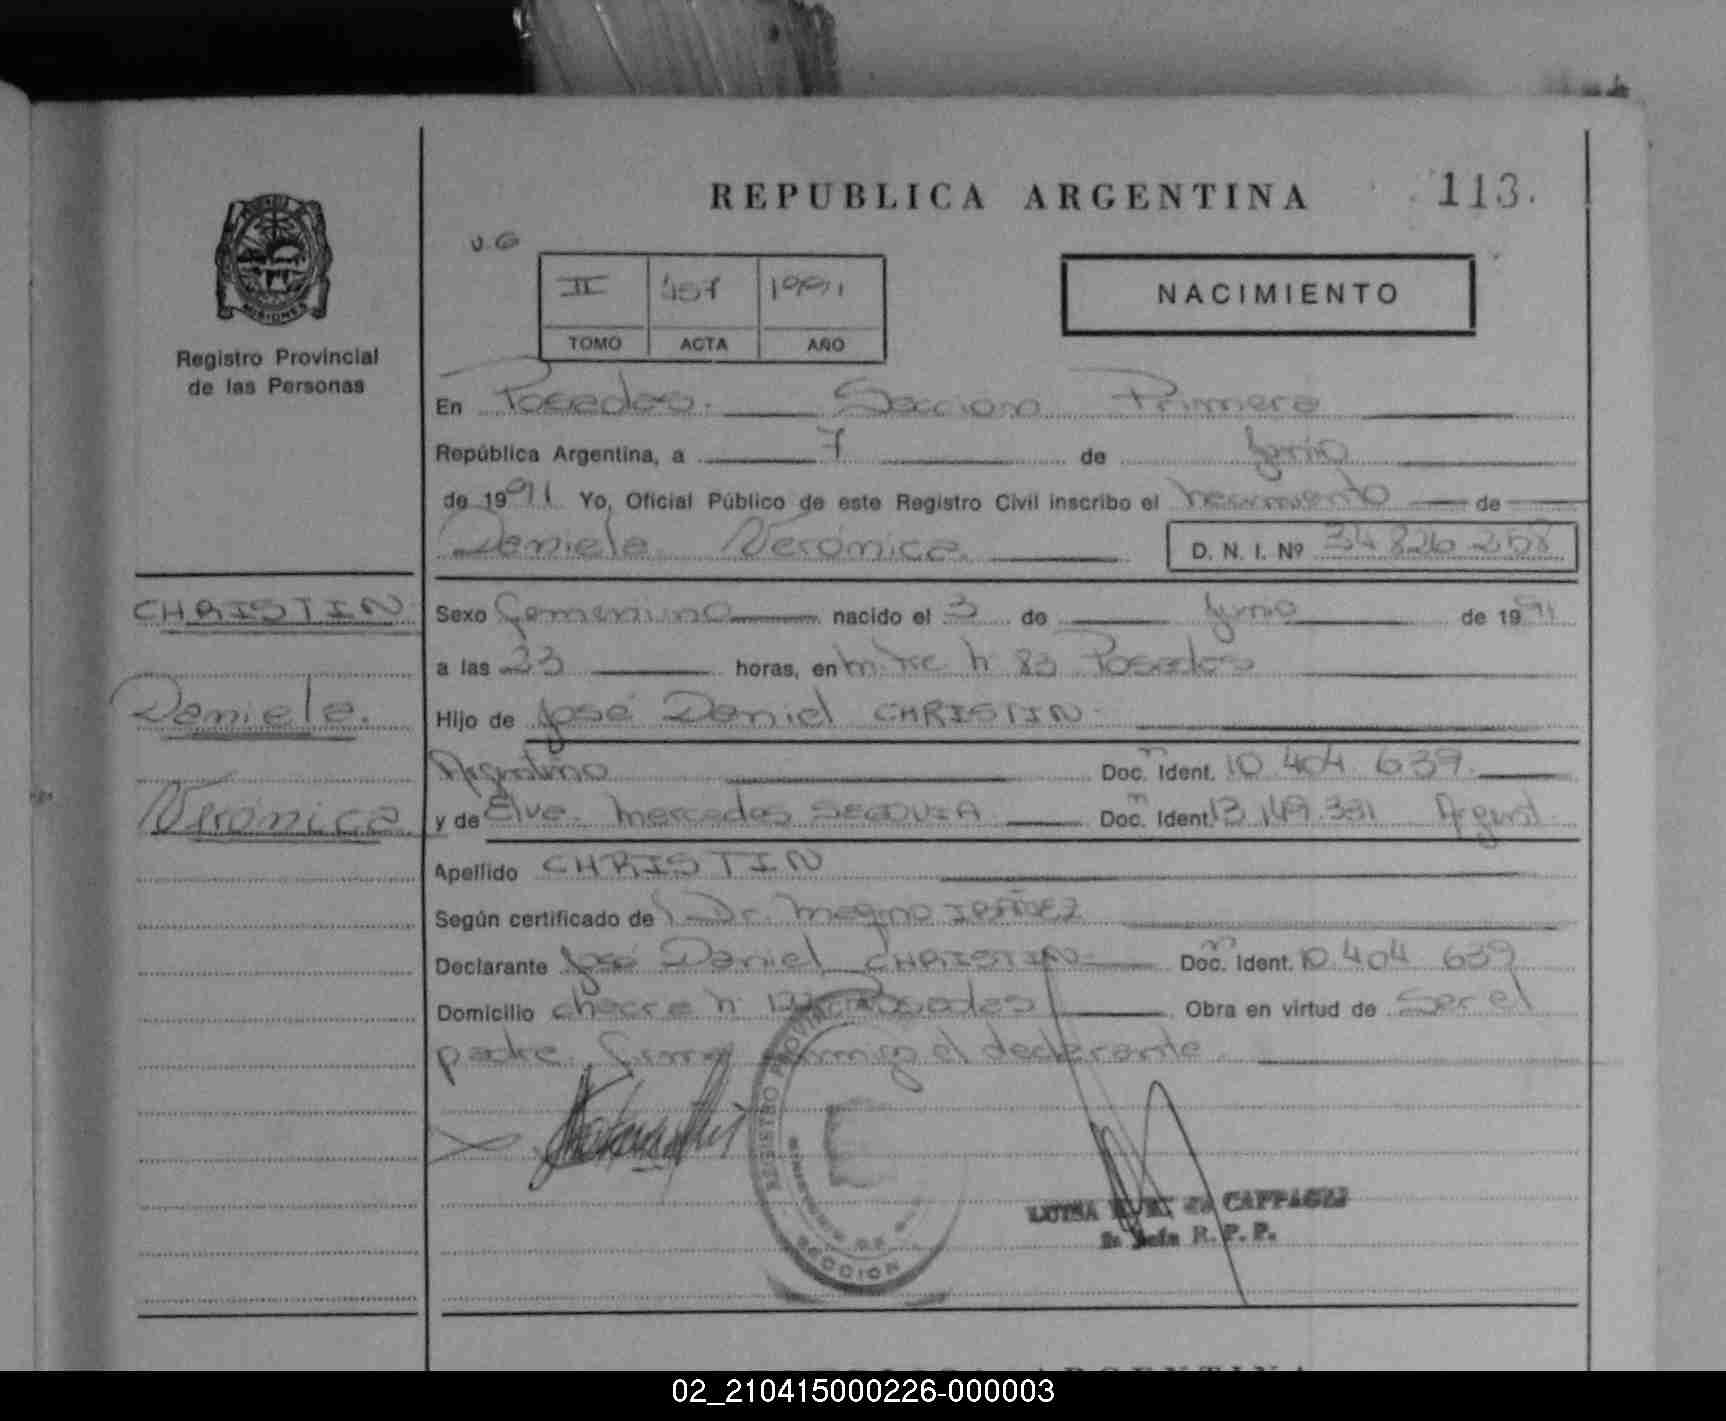 REPUBLICA ARGENTINA 113.
MISIONES
Registro Provincial
de las Personas
II 457 1991
TOMO ACTA AÑO
NACIMIENTO
En Posadas. Seccion Primera
República Argentina, a 7 de Junio
de 1991 Yo, Oficial Público de este Registro Civil inscribo el nacimiento de
Daniela Verónica. D. N. I. Nº 34 826 258
CHRISTIN
Daniela.
Verónica
Sexo femenino nacido el 3 de Junio de 1991
a las 23 horas, en Mitre n 83 Posadas
Hijo de José Daniel CHRISTIN
Argentino Doc. Ident. 10 404 639.
y de Elva Mercedes SEGOVIA Doc. Ident. 13 149.331 Argent.
Apellido CHRISTIN
Según certificado de Dr. Magno IBAÑEZ
Declarante José Daniel CHRISTIN Doc. Ident. 10 404 639
Domicilio chacra n Posadas Obra en virtud de ser el
padre. firma conmigo el declarante.
REGISTRO PROVINCIAL
SECCION
LUISA de
R. P. P.
REPUBLICA ARGENTINA
02_210415000226-000003